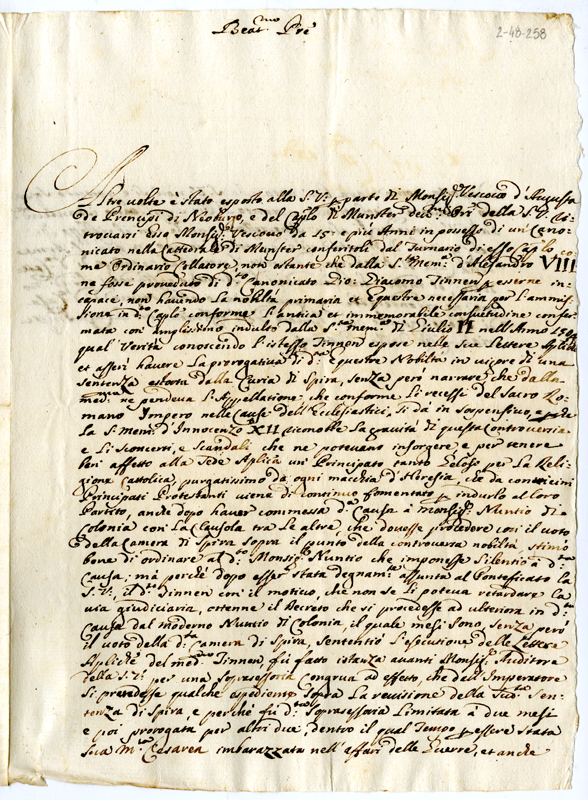 Beat.mo Pre'
2-48-258
Altre volte è stato esposto alla S.V. p parte di Monsig.r Vescovo d'Augusta
de Principi di Neoburgo, e del Caplo di Munster della S.V.
trovarsi esso Monsig.r Vescovo da 15 e più Anni in possesso di un Cano-
nicato nella Cattedrale di Munster conferitoli dal Turnario di esso Caplo co-
me Ordinario Collatore, non ostante che dalla S. Mem. d'Alesandro VIII
ne fosse proveduto di d.o Canonicato Gio: Diacomo Tinnen p esserne in-
capace, non havendo la nobiltà primaria et equestre necessaria per l'ammis-
sione in d.o Caplo conforme l'antica et immemorabile consuetudine confer-
mata con amplissimo indulto dalla S. Mem. di Giulio II nell'Anno
qual verità conoscendo l'istesso Tinnen espose nelle sue Lettere Aplice
et asserì havere la prerogativa di d.a equestre Nobiltà in vigore di una
sentenza estorta dalla Curia di Spira, senza però narrare che dalla
med.ma ne pendeva l'Appellatione, che conforme li recessi del Sacro Ro-
mano Impero nelle Cause dell'Ecclesiastici, si dà in sospensivo,
la S. Mem. d'Innocenzo XII riconobbe la gravità di questa controversia
e li sconcerti, e scandali che ne potevano insorgere e per tenere
ben affetto alla Sede Aplica un Principato tanto geloso per la Reli-
gione Cattolica, purgatissimo da ogni macchia d'Heresia, che da convicini
Principati Protestanti viene di continuo fomentato p indurlo al loro
Partito, anche dopo haver commessa d.a Causa à Monsig.r Nuntio di
Colonia con la Clausola tra le altre, che dovesse procedere con il voto
della Camera di Spira sopra il punto della controversa nobiltà, stimò
bene di ordinare al d.o Monsig.r Nuntio che imponesse silentio à d.a
Causa; mà perche dopo esser stata degnam.te assunta al Ponteficato la
S.V., il d.o Tinnen con il motivo, che non se li poteva retardare la
via giudiciaria, ottenne il Decreto che si procedesse ad ulteriora in d.a
Causa dal moderno Nuntio di Colonia, il quale mesi sono, senza però
il voto della d.a Camera di Spira, sententiò l'esecutione delle Lettere
Aplice del med.mo Tinnen, fù fatto istanza avanti Monsig.r Auditore
della S.V. per una soprasessoria congrua ad effetto, che dell'Imperatore
si prendesse qualche espediente sopra la revisione della sud.a Sen-
tenza di Spira, e perche fù d.a soprasessoria limitata à due mesi
e poi prorogata per altri due, dentro il qual Tempo p essere stata
Sua M.tà Cesarea imbarazzata nell'affari delle Guerre, et anche